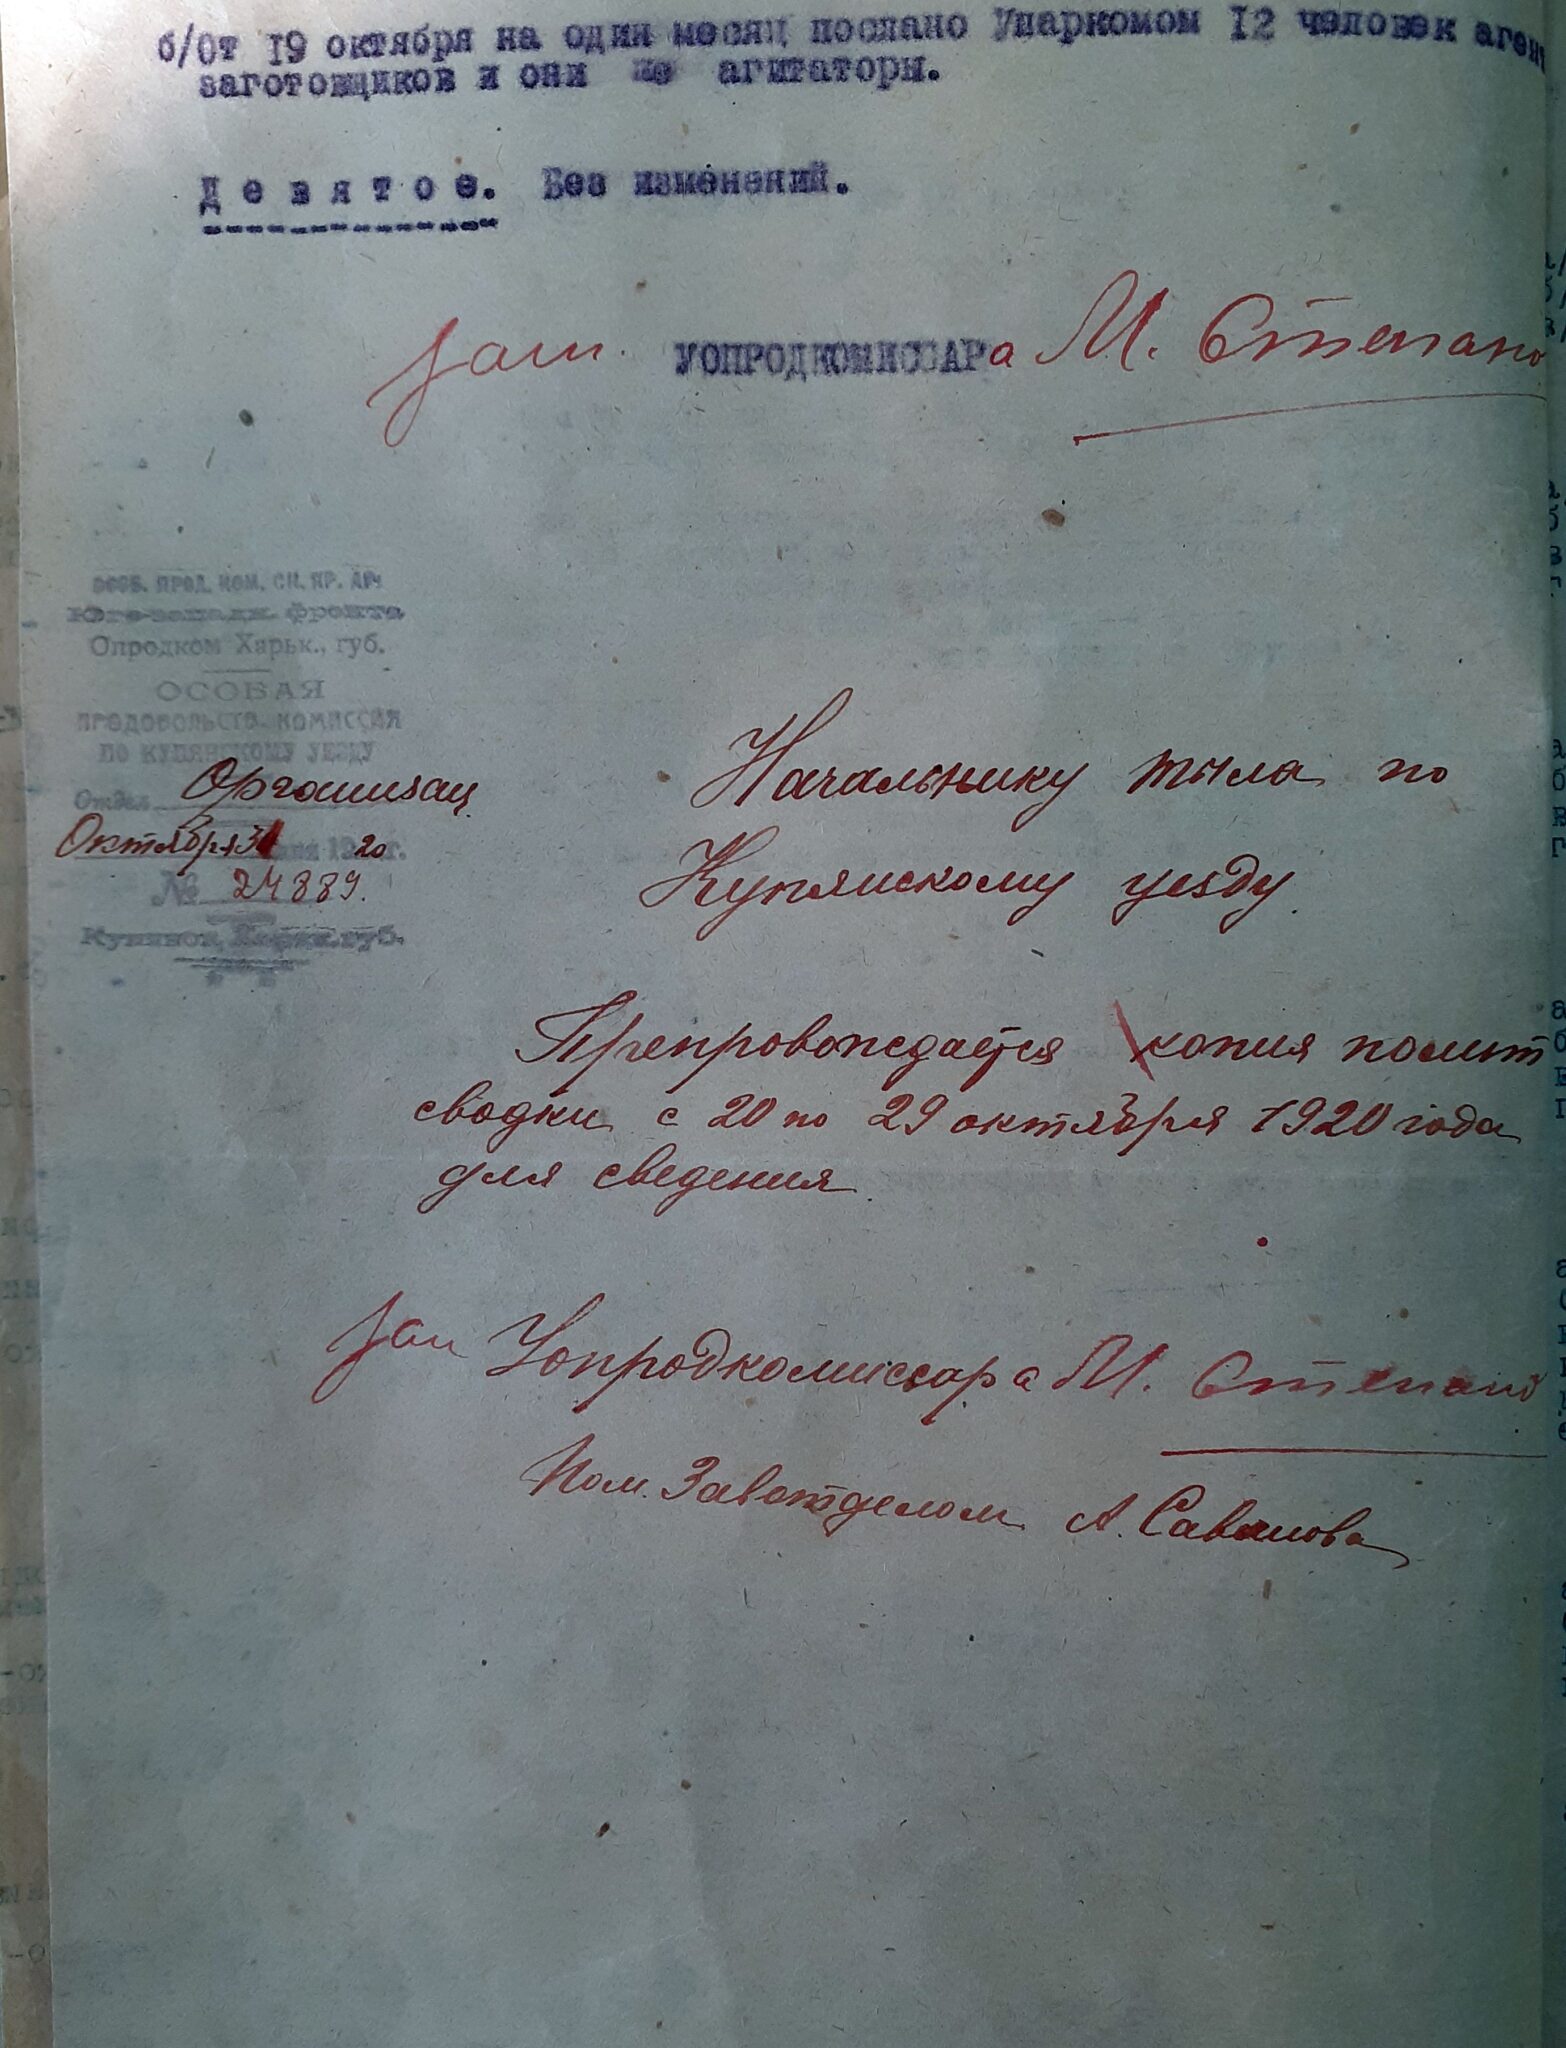 б/От 19 октября на один месяц послано Упаркомом 12 человек аген
заготовщиков и они же агитаторы.
Девятое. Без изменений.
Зам. УОПРОДКОМИССАРа М. Степано
ОСОБ. ПРОД. КОМ. СН. ЯР. АР
Юго-западн. фронта
Опродком Харьк., губ.
ОСОБАЯ
ПРОДОВОЛЬСТВ. КОМИССИЯ
ПО КУПЯНСКОМУ УЕЗДУ
Отдел Организац.
Октября 31 дня 1920 г.
№ 24889.
Купянск, Харьк. губ.
Начальнику тыла по
Купянскому уезду.
Препровождается копия полит
сводки с 20 по 29 октября 1920 года
для сведения.
Зам Уопродкомиссара М. Степано
Пом. Завотделом А. Саванова